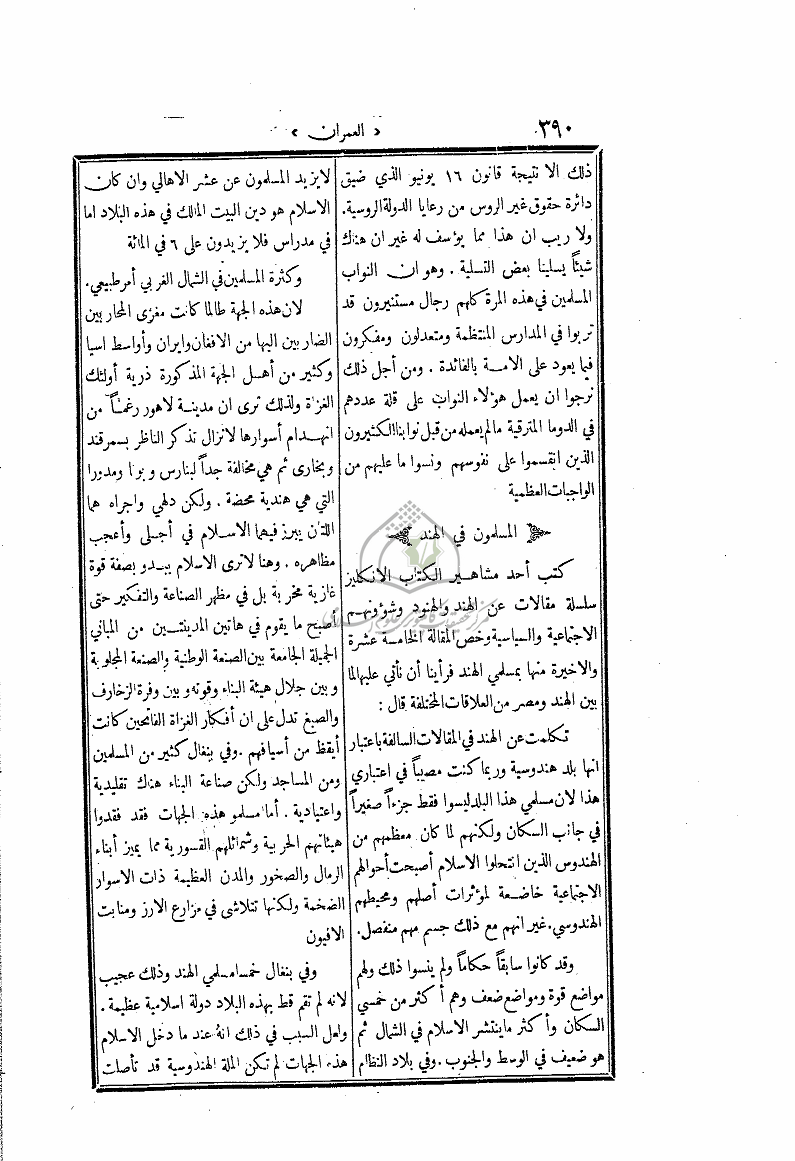 ٣٩٠
« العمران »
ذلك الا نتيجة قانون ١٦ يونيو الذي ضيق
دائرة حقوق غير الروس من رعايا الدولة الروسية.
ولا ريب ان هذا مما يؤسف له غير ان هناك
شيئاً يسلينا بعض التسلية . وهو ان النواب
المسلمين في هذه المرة كلهم رجال مستنيرون قد
تربوا في المدارس المنتظمة ومتعدلون ومفكرون
فيما يعود على الامة بالفائدة . ومن أجل ذلك
نرجوا ان يعمل هؤلاء النواب على قلة عددهم
في الدوما المترقية مالم يعمله من قبل نوابنا الكثيرون
الذين انقسموا على نفوسهم ونسوا ما عليهم من
الواجبات العظمية
المسلمون في الهند
كتب أحد مشاهير الكتاب الانكليز
سلسلة مقالات عن الهند والهنود وشؤونهم
الاجتماعية والسياسية وخص المقالة الخامسة عشرة
والاخيرة منها بمسلمي الهند فرأينا أن نأتي عليها لما
بين الهند ومصر من العلاقات المختلفة قال :
تكلمت عن الهند في المقالات السالفة باعتبار
انها بلد هندوسية وربما كنت مصيباً في اعتباري
هذا لان مسلمي هذا البلد ليسوا فقط جزءاً صغيراً
في جانب السكان ولكنهم لما كان معظمهم من
الهندوس الذين انتحلوا الاسلام أصبحت أحوالهم
الاجتماعية خاضعة لمؤثرات أصلهم ومحيطهم
الهندوسي. غير انهم مع ذلك جسم مهم منفصل.
وقد كانوا سابقاً حكاماً ولم ينسوا ذلك ولهم
مواضع قوة ومواضع ضعف وهم أكثر من خمسي
السكان وأكثر ما ينتشر الاسلام في الشمال ثم
هو ضعيف في الوسط والجنوب . وفي بلاد النظام
لا يزيد المسلمون عن عشر الاهالي وان كان
الاسلام هو دين البيت المالك في هذه البلاد اما
في مدراس فلا يزيدون على ٦ في المائة
وكثرة المسلمين في الشمال الغربي أمر طبيعي.
لان هذه الجهة طالما كانت مغزى المحاربين
الضاربين اليها من الافغان وايران وأواسط اسيا
وكثير من أهل الجهة المذكورة ذرية أولئك
الغزاة ولذلك ترى ان مدينة لاهور رغماً من
انهدام أسوارها لا تزال تذكر الناظر بسمرقند
وبخارى ثم هي مخالفة جداً لبنارس وبونا ومدورا
التي هي هندية محضة . ولكن دلهي واجراه هما
اللتان يبرز فيهما الاسلام في أجلى وأعجب
مظاهره . وهنا لا ترى الاسلام يبدو بصفة قوة
غازية مخربة بل في مظهر الصناعة والتفكير حتى
أصبح ما يقوم في هاتين المدينتين من المباني
الجميلة الجامعة بين الصنعة الوطنية والصنعة المجلوبة
وبين جلال هيئة البناء وقوته وبين وفرة الزخارف
والصبغ تدل على ان أفكار الغزاة الفاتحين كانت
أيقظ من أسيافهم . وفي بنغال كثير من المسلمين
ومن المساجد ولكن صناعة البناء هناك تقليدية
واعتيادية . أما مسلمو هذه الجهات فقد فقدوا
هيئاتهم الحربية وشمائلهم القسورية مما يميز أبناء
الرمال والصخور والمدن العظيمة ذات الاسوار
الضخمة ولكنها تتلاشى في مزارع الارز ومنابت
الافيون
وفي بنغال خمسا مسلمي الهند وذلك عجيب
لانه لم تقم قط بهذه البلاد دولة اسلامية عظيمة .
ولعل السبب في ذلك انه عند ما دخل الاسلام
هذه الجهات لم تكن الملة الهندوسية قد تأصلت